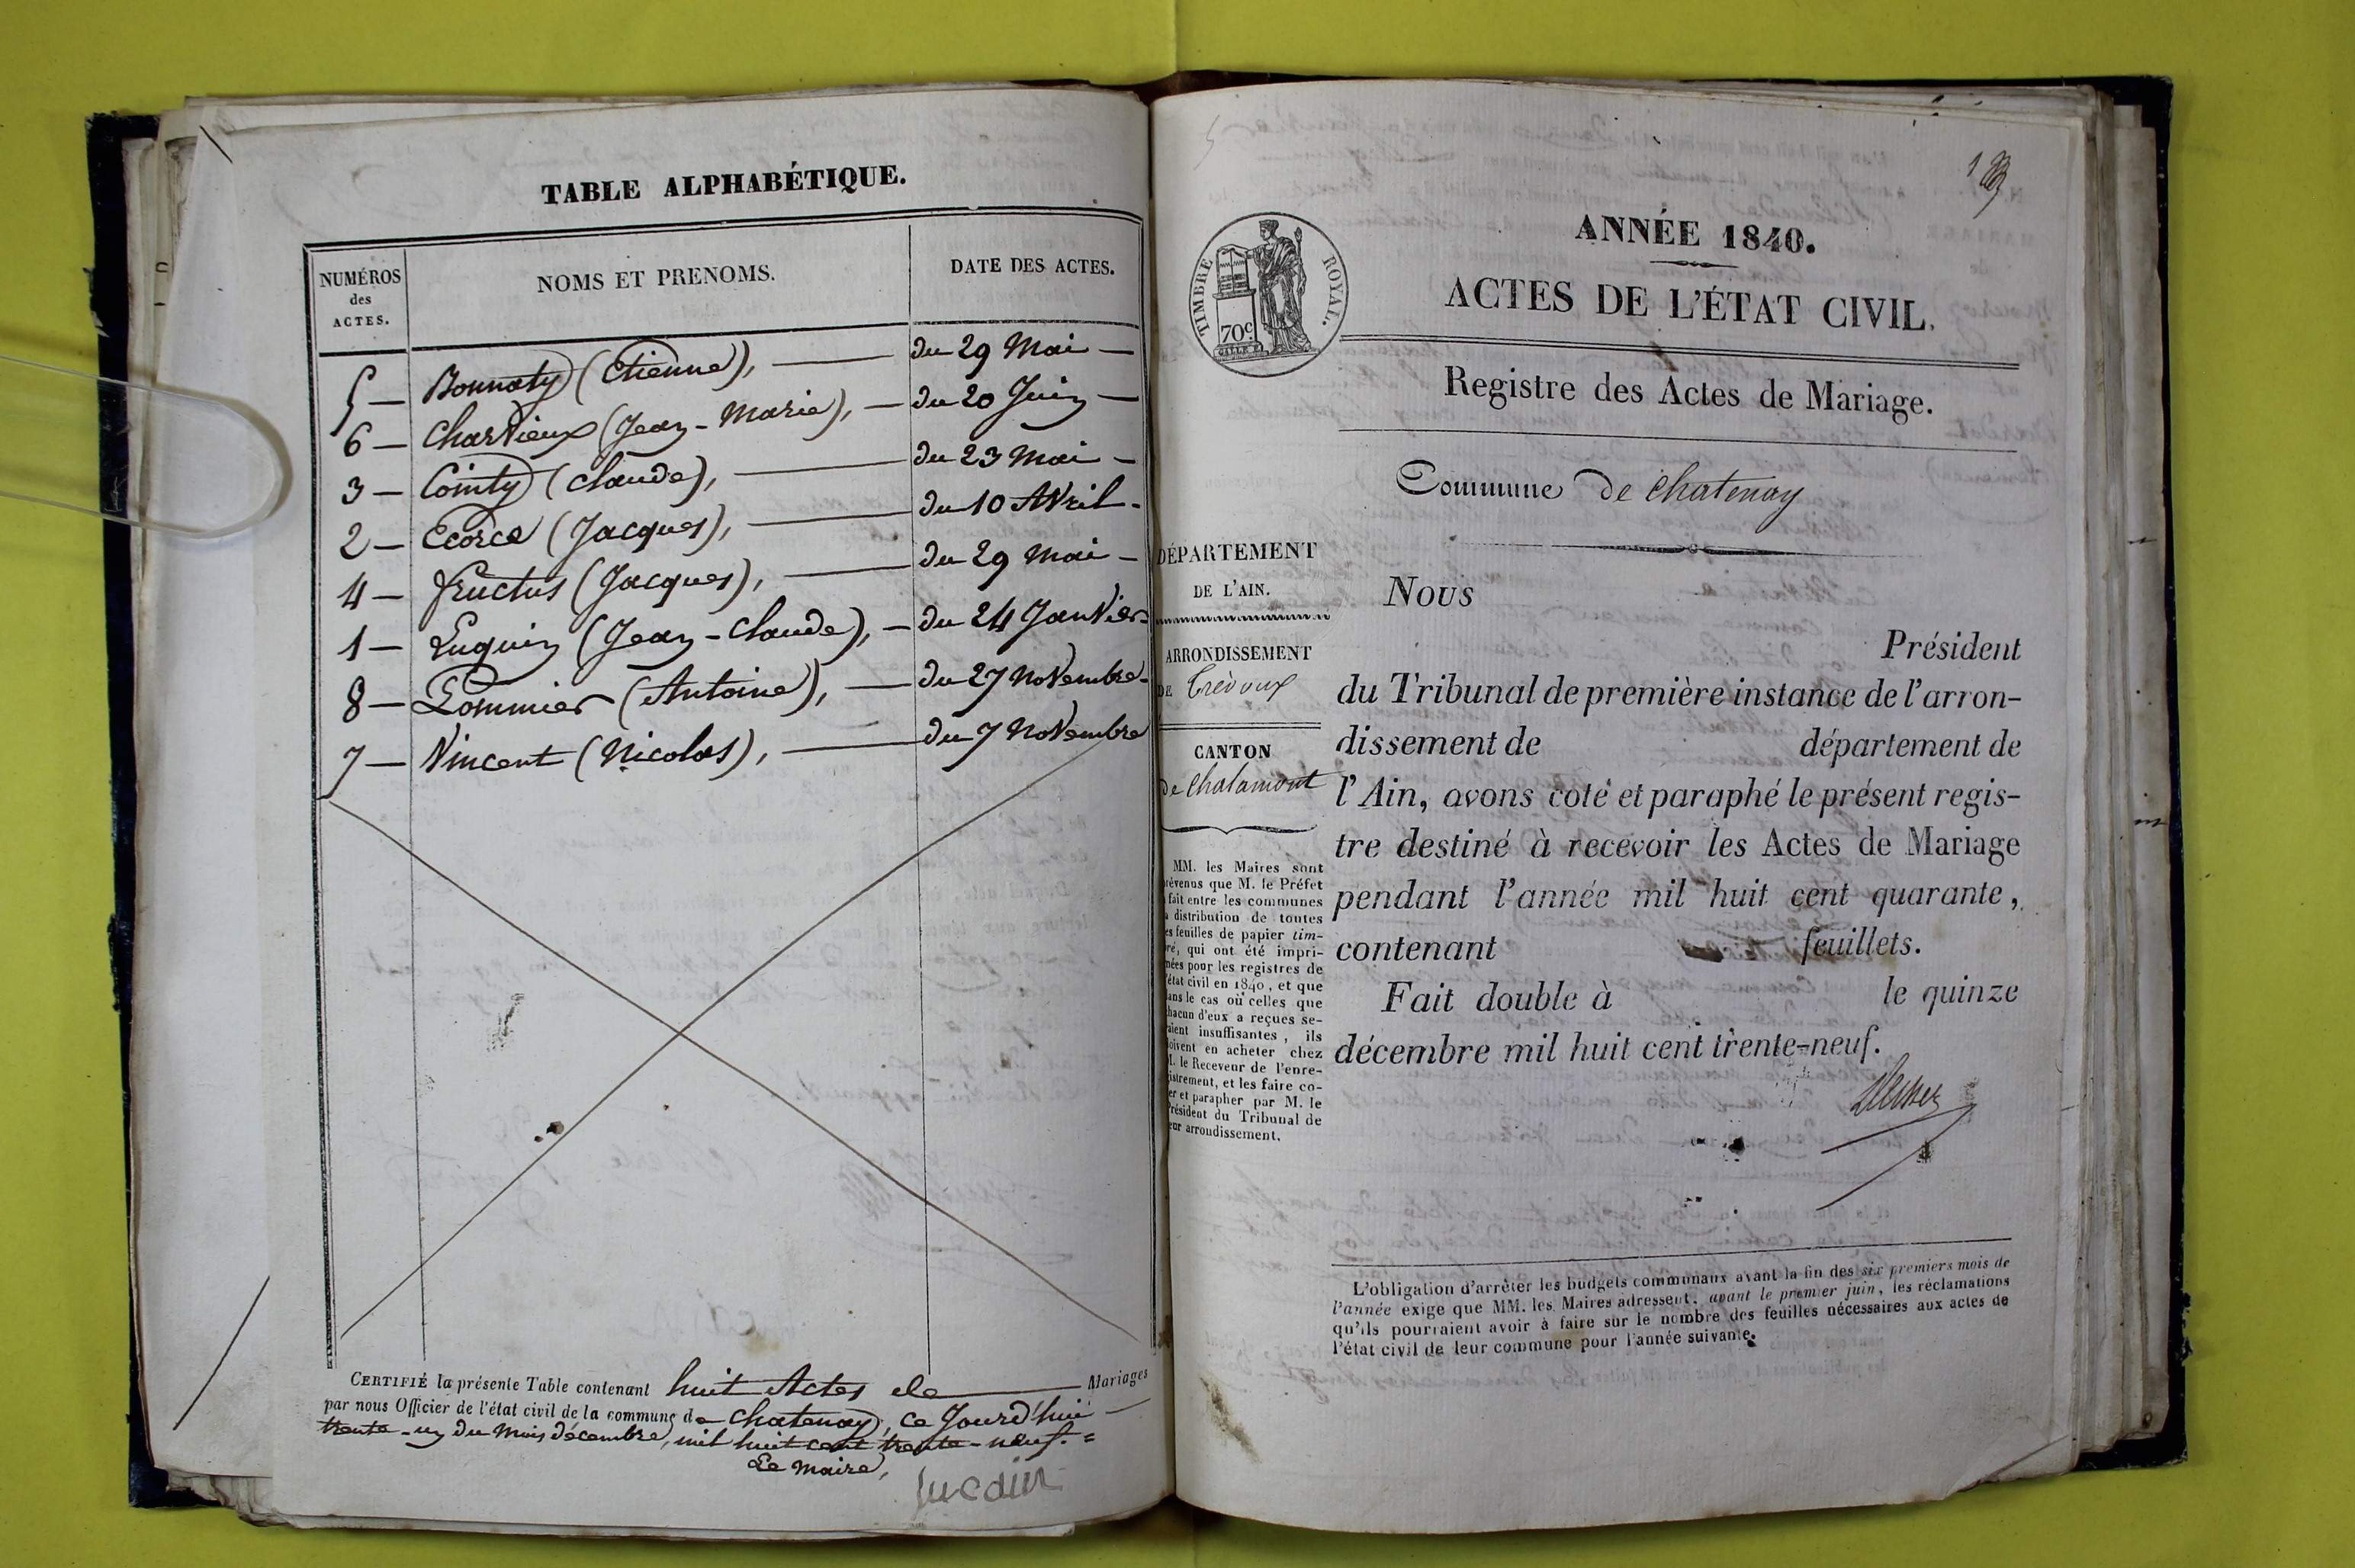 TABLE ALPHABÉTIQUE.
NUMÉROS des ACTES.
NOMS ET PRENOMS.
DATE DES ACTES.
5 — Bonnaty (Etienne), — du 29 Mai —
6 — Charvieux (Jean-Marie), — du 20 Juin —
3 — Cointy (Claude), — du 23 Mai —
2 — Ecorce (Jacques), — du 10 Avril -
4 — fructus (Jacques), — du 29 Mai —
1 — Luquin (Jean-Claude), — du 24 Janvier -
8 — Pommier (Antoine), — du 27 Novembre -
7 — Vincent (Nicolas), — du 7 Novembre
CERTIFIÉ la présente Table contenant huit Actes de — Mariages
par nous Officier de l'état civil de la commune de Chatenay, ce Jourd'hui —
trente-un du mois décembre, mil huit cent trente-neuf. =
Le Maire,
ANNÉE 1840.
ACTES DE L'ÉTAT CIVIL.
TIMBRE ROYAL.
70c
Registre des Actes de Mariage.
Commune de Chatenay
DÉPARTEMENT
DE L'AIN.
ARRONDISSEMENT
DE Trévoux
CANTON
de Chalamont
MM. les Maires sont
prévenus que M. le Préfet
fait entre les communes
la distribution de toutes
les feuilles de papier tim-
bré, qui ont été impri-
mées pour les registres de
l'état civil en 1840, et que
dans le cas où celles que
chacun d'eux a reçues se-
raient insuffisantes, ils
doivent en acheter chez
M. le Receveur de l'enre-
gistrement, et les faire co-
ter et parapher par M. le
Président du Tribunal de
leur arroudissement.
Nous
Président
du Tribunal de première instance de l'arron-
dissement de département de
l'Ain, avons coté et paraphé le présent regis-
tre destiné à recevoir les Actes de Mariage
pendant l'année mil huit cent quarante,
contenant feuillets.
Fait double à le quinze
décembre mil huit cent trente-neuf.
L'obligation d'arrêter les budgets communaux avant la fin des six premiers mois de
l'année exige que MM. les Maires adressent, avant le premier juin, les réclamations
qu'ils pourraient avoir à faire sur le nombre des feuilles nécessaires aux actes de
l'état civil de leur commune pour l'année suivante.